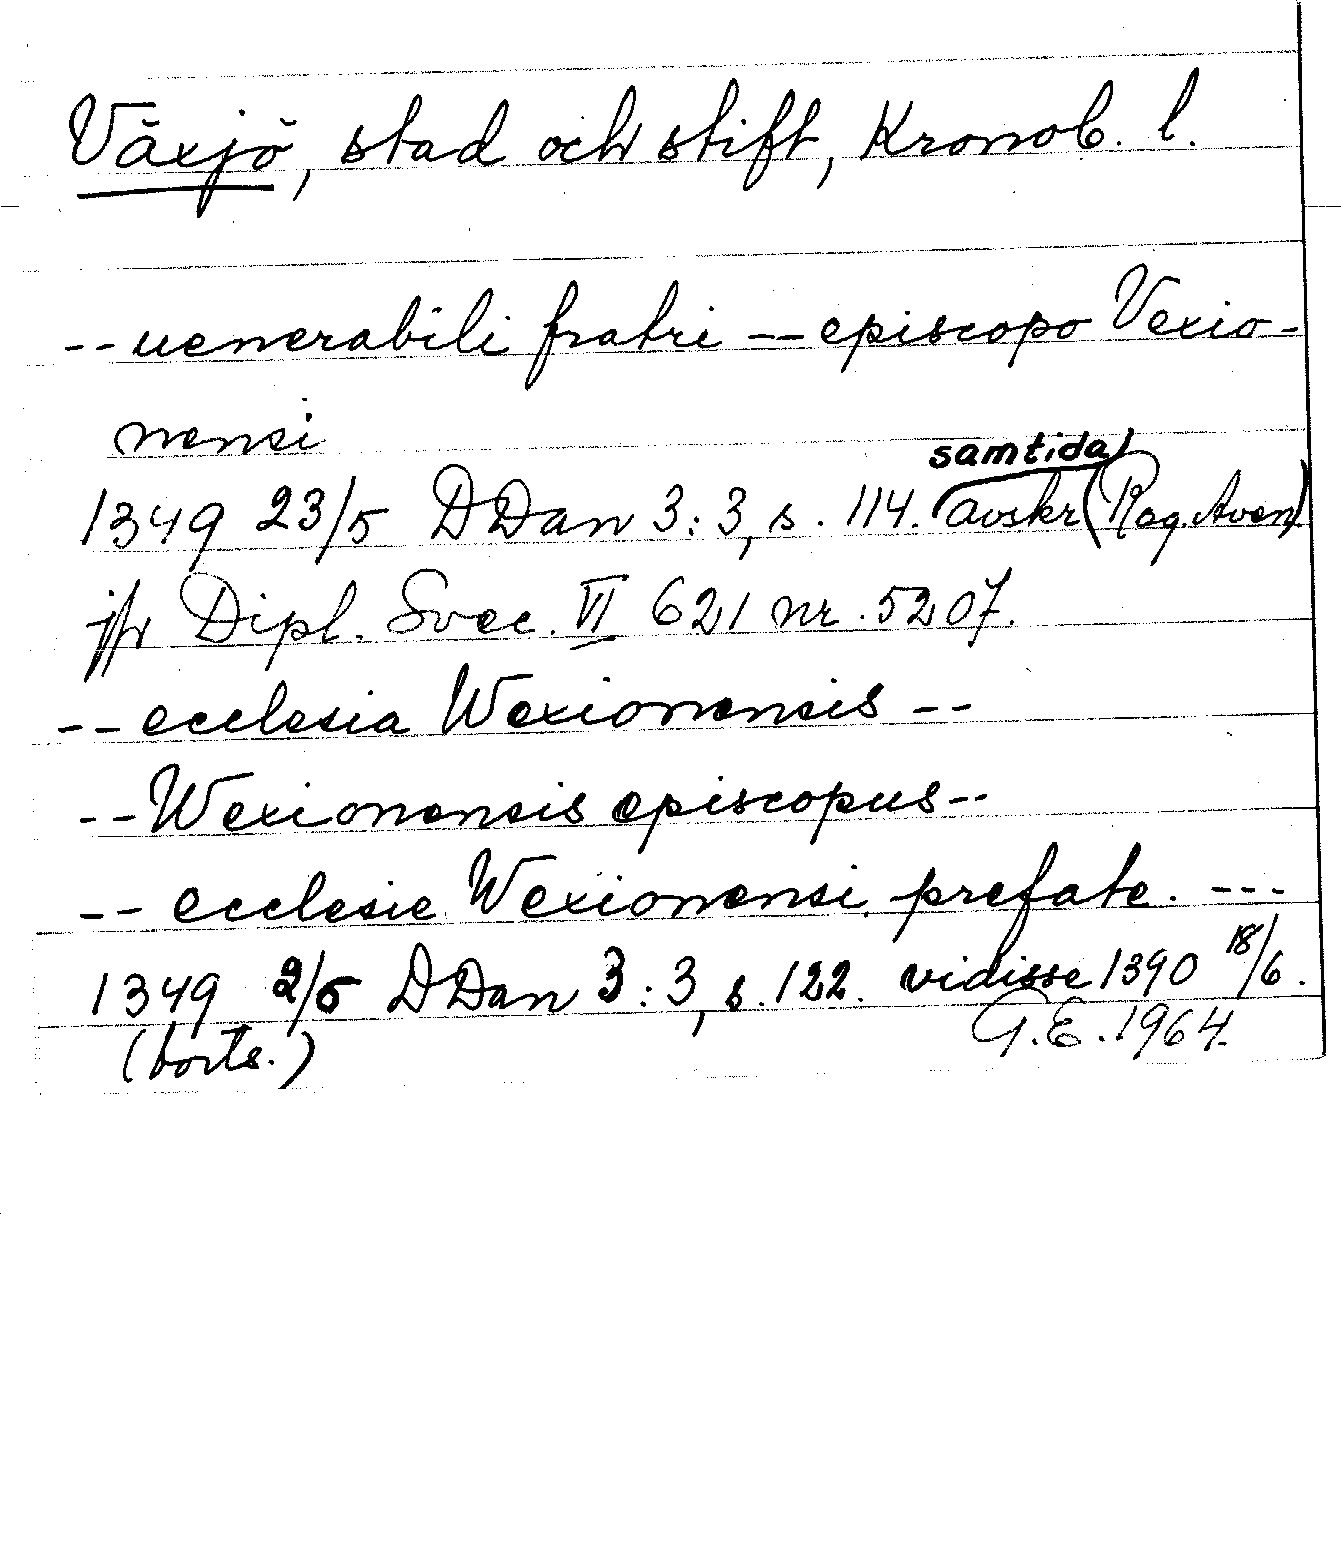 Växjö, stad och stift, Kronob. l.
-- uenerabili fratri -- episcopo Vexio-
nensi
samtida
1349 23/5 DDan 3:3, s. 114. avskr (Reg. Aven)
jfr Dipl. Svec. VI 621 nr. 5207.
-- ecclesia Wexionensis --
-- Wexionensis episcopus --
-- ecclesie Wexionensi prefate. ---
1349 2/6 DDan 3:3, s. 122. vidisse 1390 18/6.
(forts.) G.E. 1964.